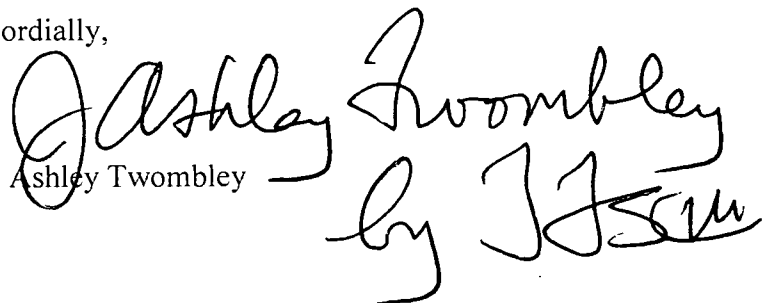 ordially,
J Ashley Twombley
Ashley Twombley
by